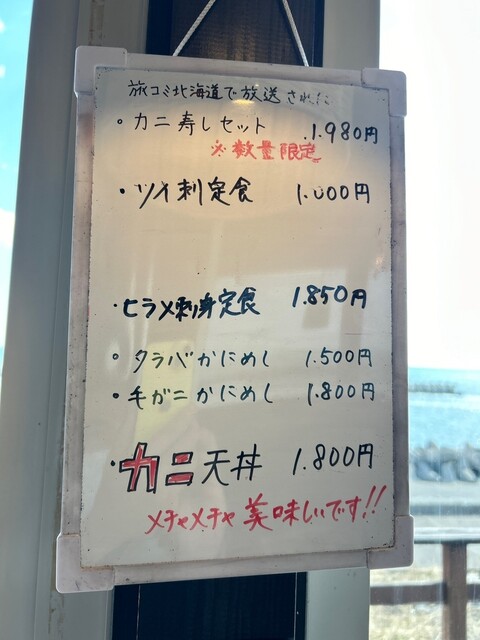 旅コミ北海道で放送された
・カニ寿しセット 1.980円
※数量限定
・ツメ刺定食 1.000円
・ヒラメ刺身定食 1.850円
・タラバかにめし 1.500円
・毛ガニかにめし 1.800円
・カニ天丼 1.800円
メチャメチャ美味しいです!!